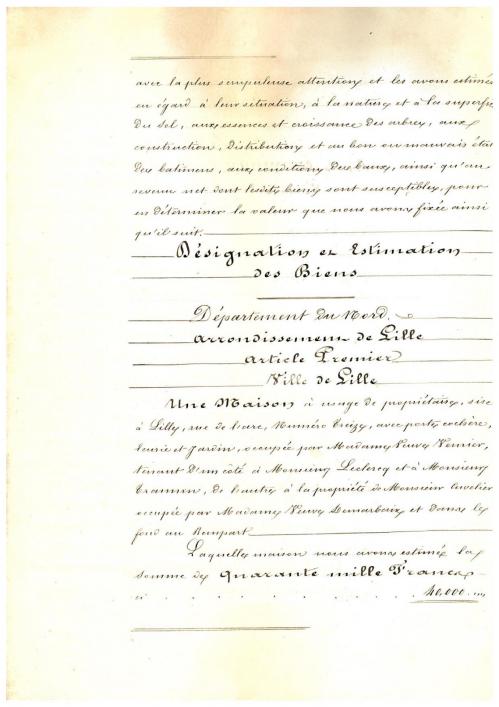 avec la plus scrupuleuse attention et les avons estimés
eu égard à leur situation, à la nature et à la superficie
du sol, aux essences et croissance des arbres, aux
construction, distribution et au bon ou mauvais état
des batimens, aux conditions des baux, ainsi qu'au
revenu net dont lesdits biens sont susceptibles, pour
en déterminer la valeur que nous avons fixée ainsi
qu'il suit.
Désignation et Estimation
des Biens
Département du Nord.
Arrondissement de Lille
Article Premier
Ville de Lille
Une Maison à usage de propriétaire, sise
à Lille, rue de l'arc, Numéro treize, avec porte cochère,
écurie et Jardin, occupée par Madame Veuve
tenant d'un côté à Monsieur Leclercq et à Monsieur
de l'autre à la propriété de Monsieur Cuvelier
occupée par Madame Veuve Demarbaix et dans le
fond au Rempart
Laquelle maison nous avons estimée la
somme de Quarante mille Francs
ci . . . . . . . . 40,000 . "